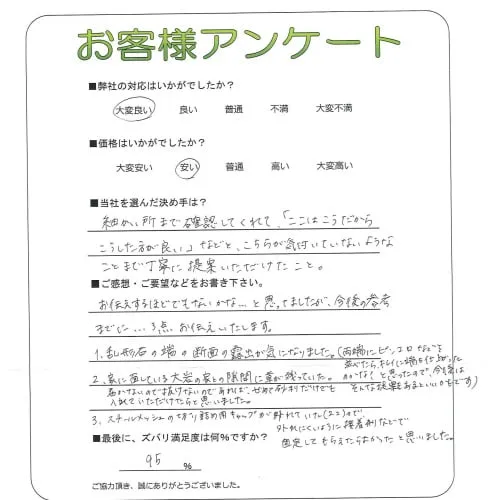 お客様アンケート
■弊社の対応はいかがでしたか？
大変良い 良い 普通 不満 大変不満
■価格はいかがでしたか？
大変安い 安い 普通 高い 大変高い
■当社を選んだ決め手は？
細かい所まで確認してくれて、「ここはこうだから
こうした方が良い」などと、こちらが気付いていないような
ことまで丁寧に提案いただけたこと。
■ご感想・ご要望などをお書き下さい。
お伝えするほどでもないかな…と思ってましたが、今後の参考
までに…3点お伝えいたします。
1. 乱形石の端の断面の露出が気になりました。(両端にピンコロなどを
並べたら、キレイに端を仕舞った
かな？と思ったので、今後は
そんな提案もあるといいかもです)
2. 家に面している大岩の家との隙間に草が残っていた。
届かないので抜けないのであれば、せめて砂利だけでも
入れていただけたらと思いました。
3. スチールメッシュの切り詰め用キャップが外れていた(2コ)ので
外れにくいように接着剤などで
固定してもらえたらよかったと思いました。
■最後に、ズバリ満足度は何％ですか？
95 ％
ご協力頂き、誠にありがとうございました。